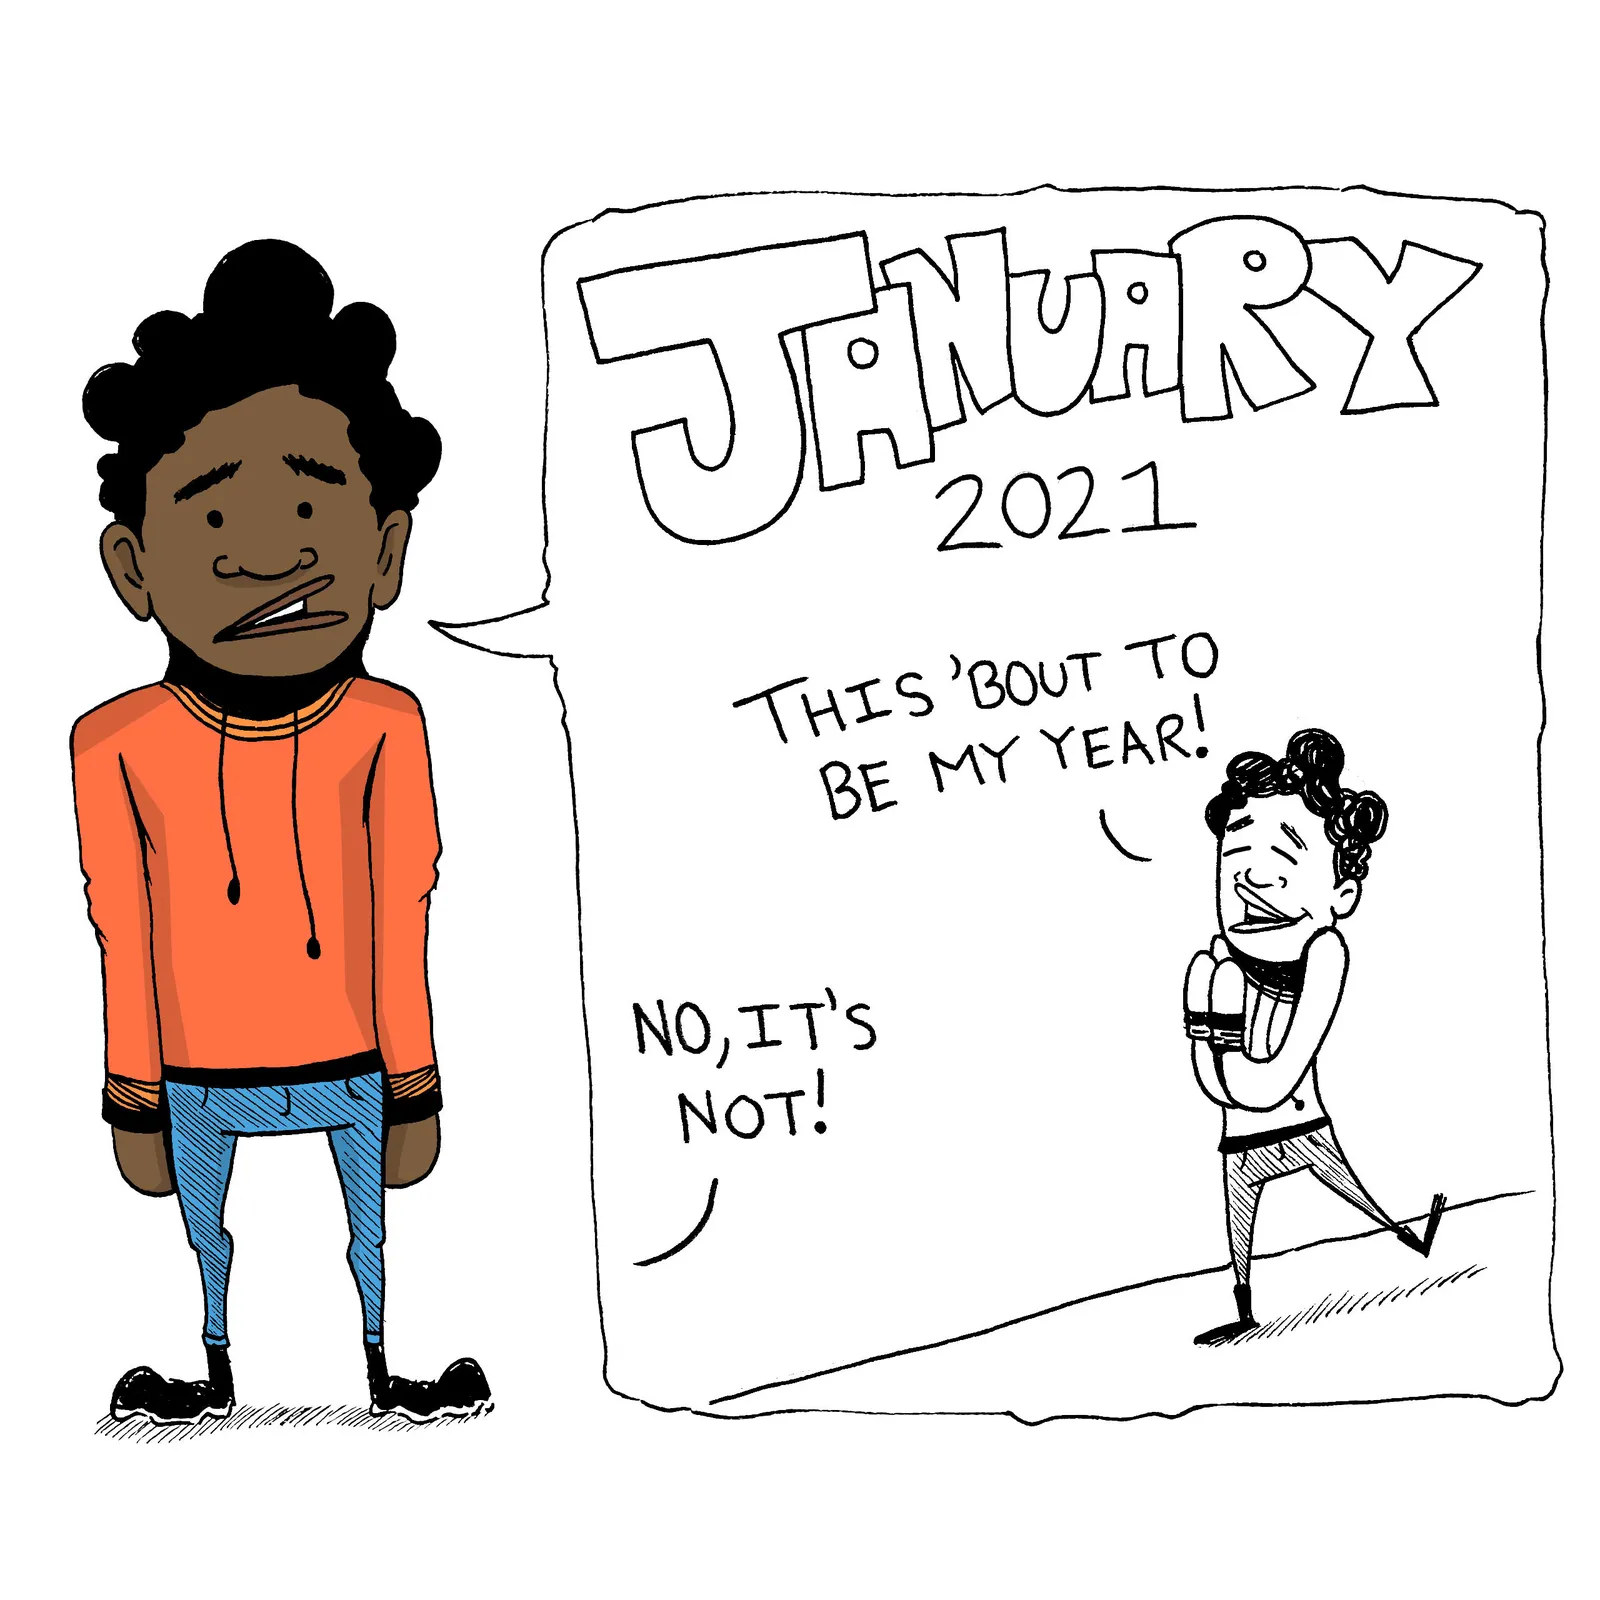 JANUARY
2021
THIS 'BOUT TO
BE MY YEAR!
NO, IT'S
NOT!